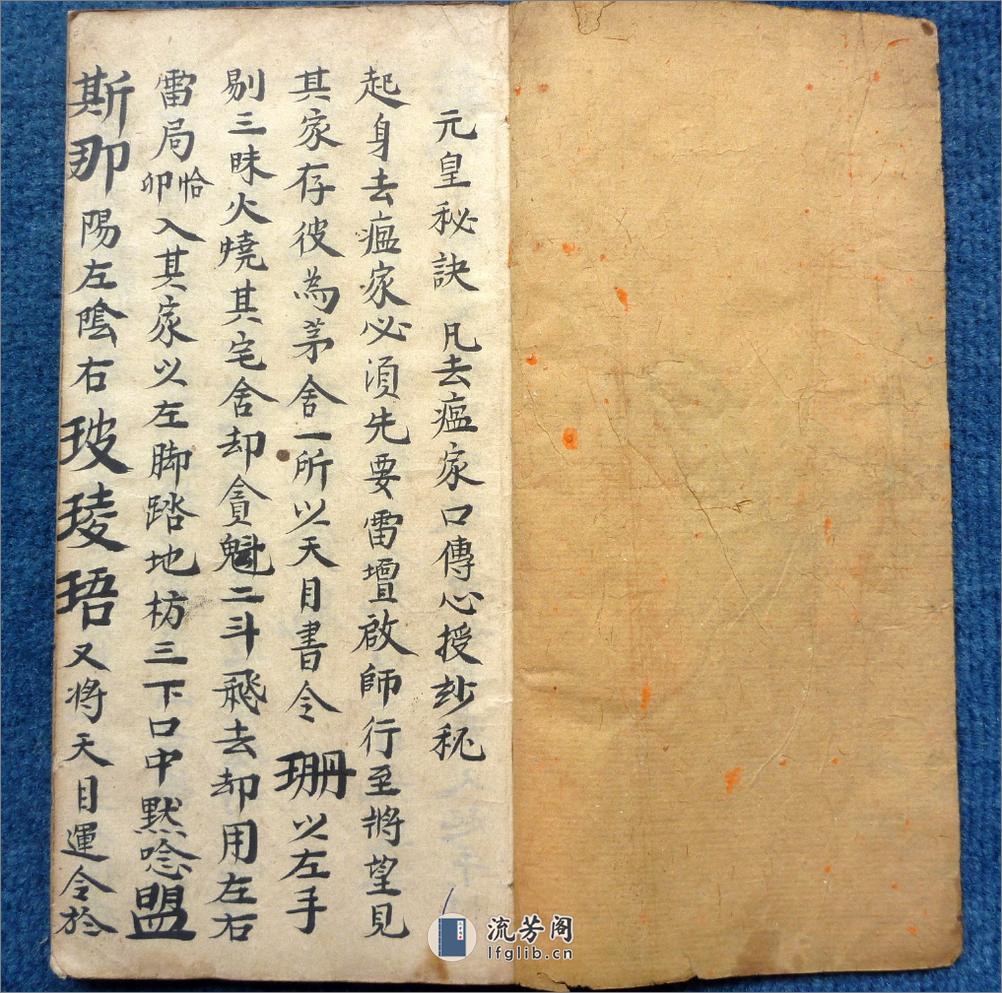 元皇秘訣 凡去瘟家口傳心授玅秘
起身去瘟家必湏先要雷壇啟師行至將望見
其家存彼為茅舍一所以天目書令珊以左手
剔三昧火燒其宅舍却貪魁二斗飛去却用左右
雷局恰卯入其家以左脚踏地枋三下口中默唸盟
斯那陽左陰右玻㻏珸又將天目運令於
流芳阁
lfglib.cn